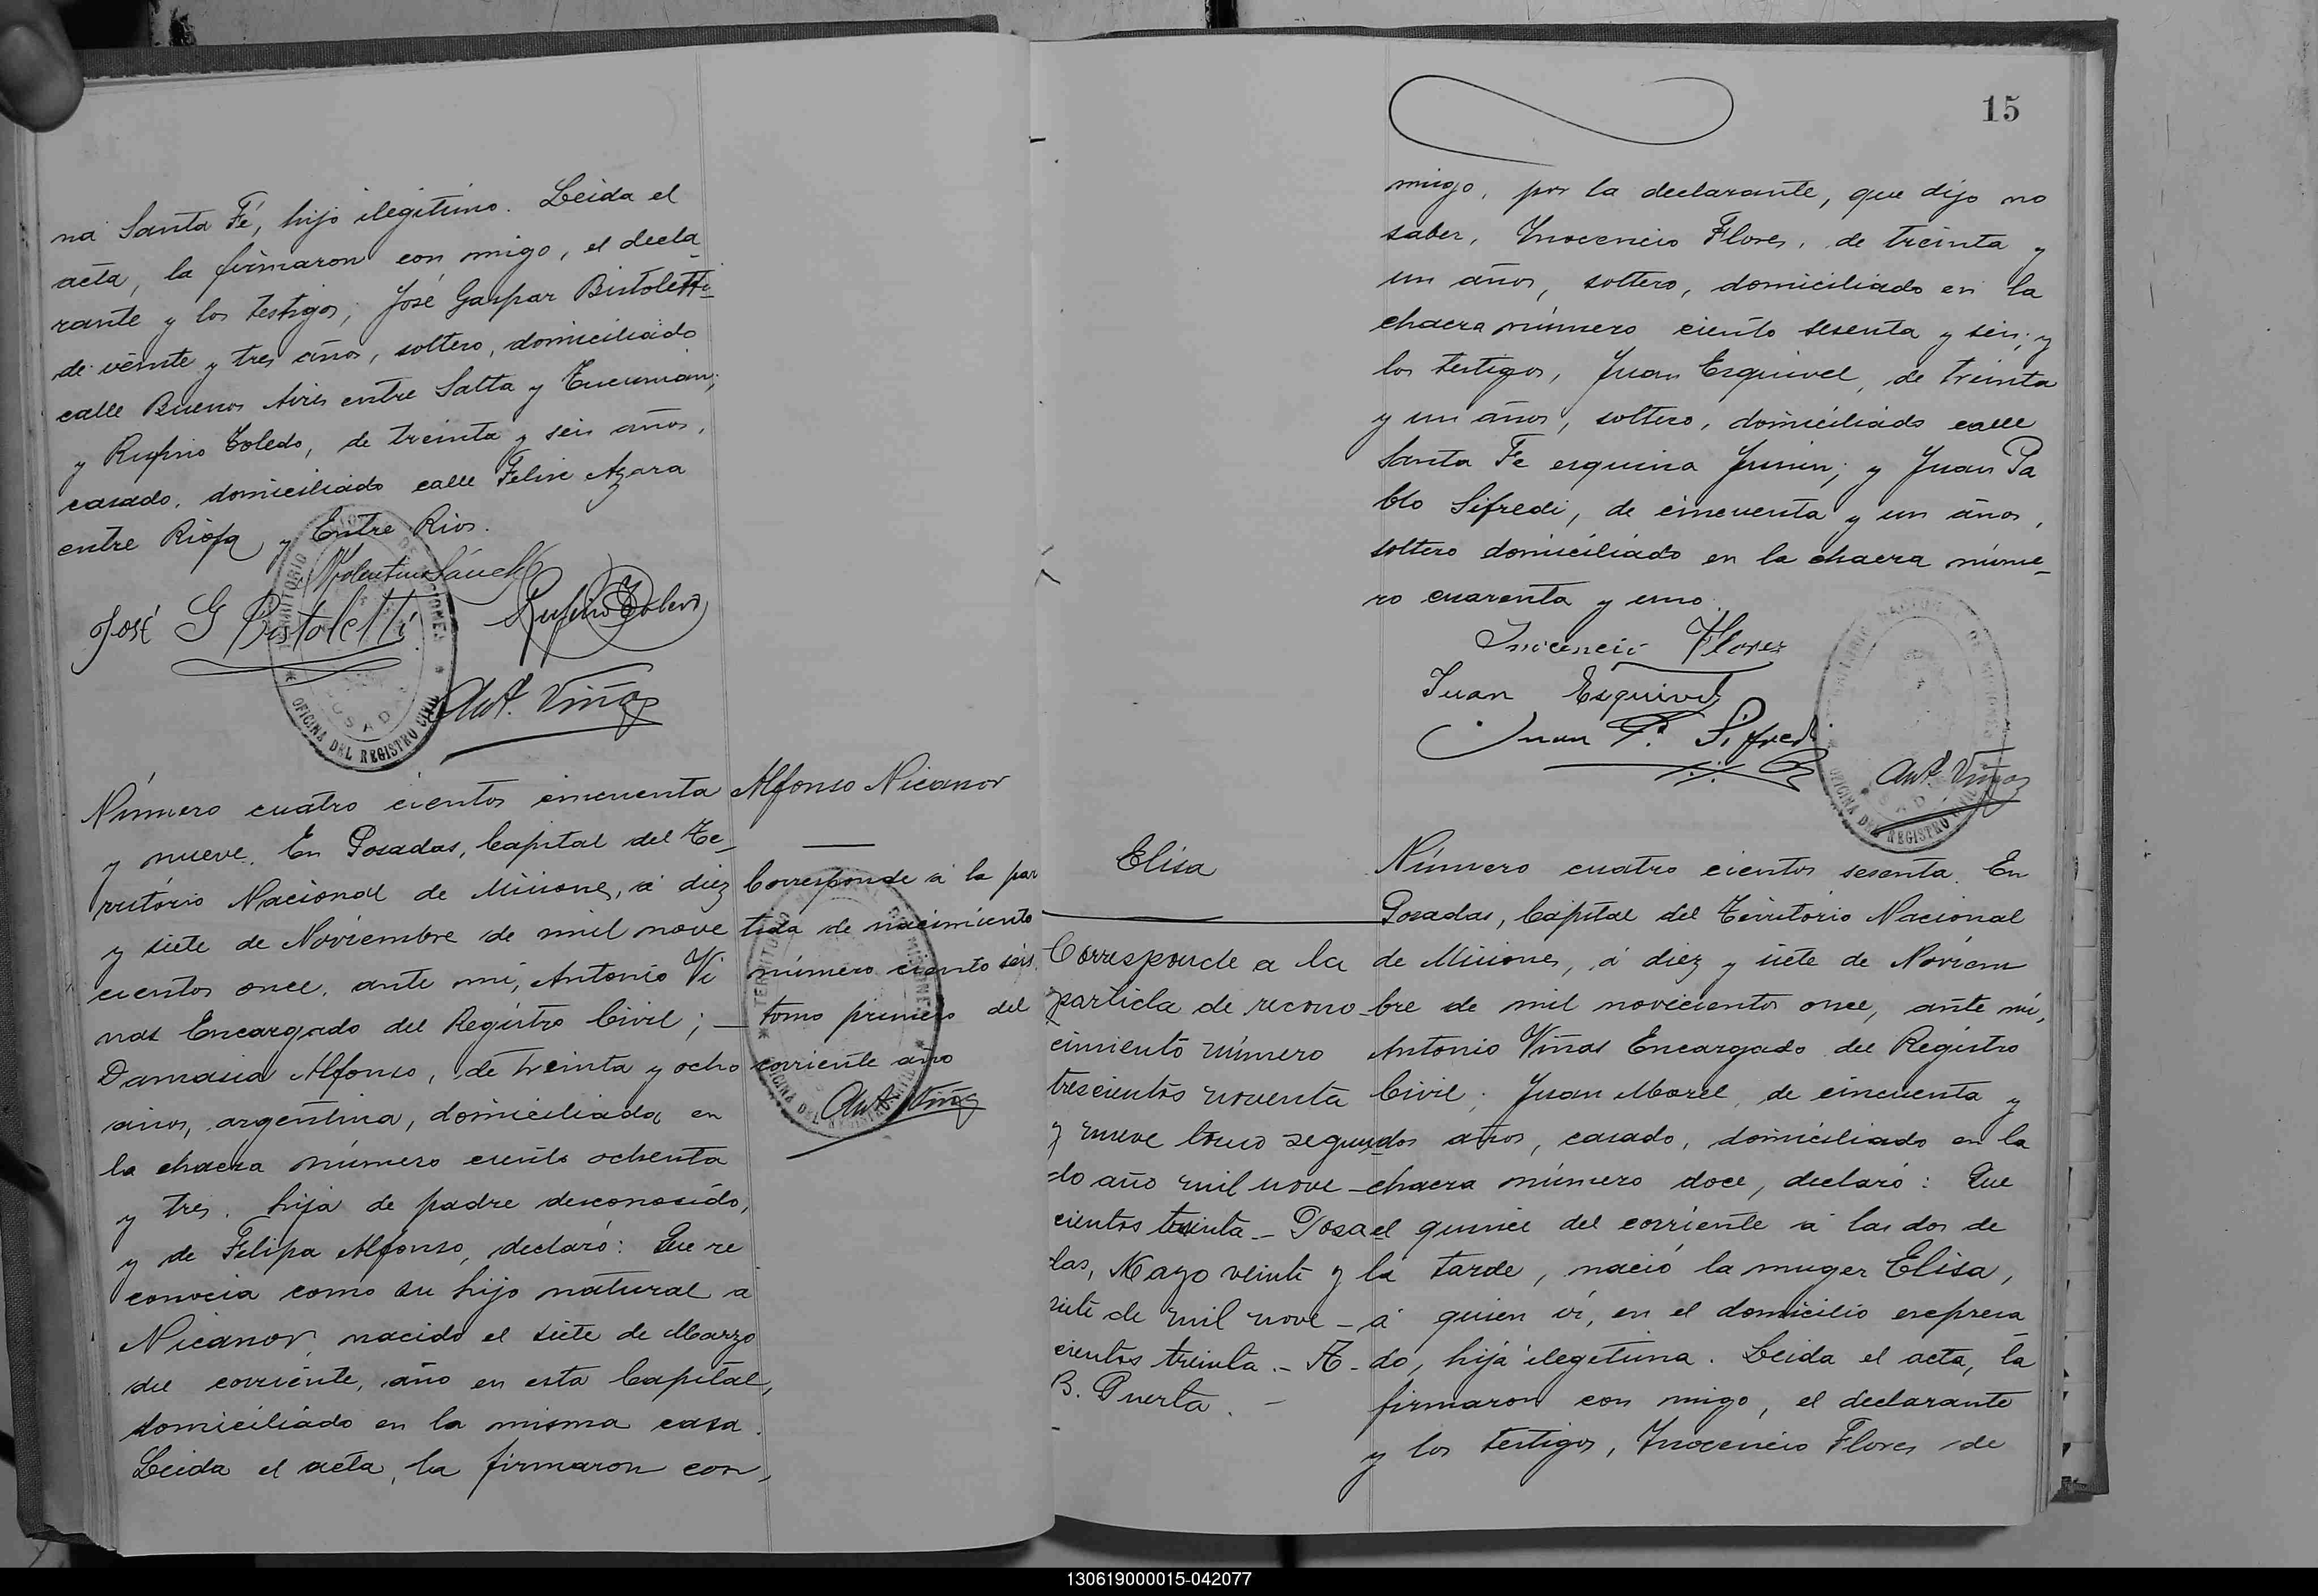 na Santa Fé, hijo ilegitimo. Leida el
acta, la firmaron con migo, el decla
rante y los testigos; José Gaspar Bistoletti
de veinte y tres años, soltero, domiciliado
calle Buenos Aires entre Salta y Tucuman;
y Rufino Toledo, de treinta y seis años,
casado, domiciliado calle Felix Azara
entre Rioja y Entre Rios.
José G Bistoletti
Rufino Toledo
Ant. Viñas
TERRITORIO DE MISIONES
POSADAS
OFICINA DEL REGISTRO CIVIL
Número cuatro cientos cincuenta
y nueve. En Posadas, Capital del Te-
rritório Nacional de Misiones, á diez
y siete de Noviembre de mil nove
cientos once, ante mi, Antonio Vi
ñas Encargado del Registro Civil; -
Damasia Alfonso, de treinta y ocho
años, argentina, domiciliada en
la chacra número ciento ochenta
y tres, hija de padre desconocido,
y de Felipa Alfonso, declaró: Que re
conocia como su hijo natural a
Nicanor, nacido el siete de Marzo
del corriente, año en esta Capital,
domiciliado en la misma casa.
Leida el acta, la firmaron con,
Alfonso Nicanor
Corresponde á la par
tida de nacimiento
número ciento seis
tomo primero del
corriente año
Ant. Viñas
15
migo, por la declarante, que dijo no
saber, Inocencio Flores, de treinta y
un años, soltero, domiciliado en la
chacra número ciento sesenta y seis; y
los testigos, Juan Esquivel, de treinta
y un años, soltero, domiciliado calle
Santa Fe esquina Junin; y Juan Pa
blo Sifredi, de cincuenta y un años,
soltero domiciliado en la chacra núme-
ro cuarenta y uno.
Inocencio Flores
Juan Esquivel
Juan P. Sifredi
Ant. Viñas
OFICINA DEL REGISTRO CIVIL
Elisa
Corresponde a la
partida de recono-
cimiento número
trescientos noventa
y nueve tomo segun
do año mil nove-
cientos treinta - Posa
das, Mayo veinte y
siete de mil nove-
cientos treinta. - A-
B. Puerta. -
Número cuatro cientos sesenta. En
Posadas, Capital del Território Nacional
de Misiones, á diez y siete de Noviem
bre de mil novecientos once, ante mi,
Antonio Viñas Encargado del Registro
Civil; Juan Morel, de cincuenta y
dos años, casado, domiciliado en la
chacra número doce, declaró: Que
el quince del corriente á las dos de
la tarde, nació la muger Elisa,
á quien vi, en el domicilio espresa
do, hija ilegetima. Leida el acta, la
firmaron con migo, el declarante
y los testigos, Inocencio Flores de
130619000015-042077